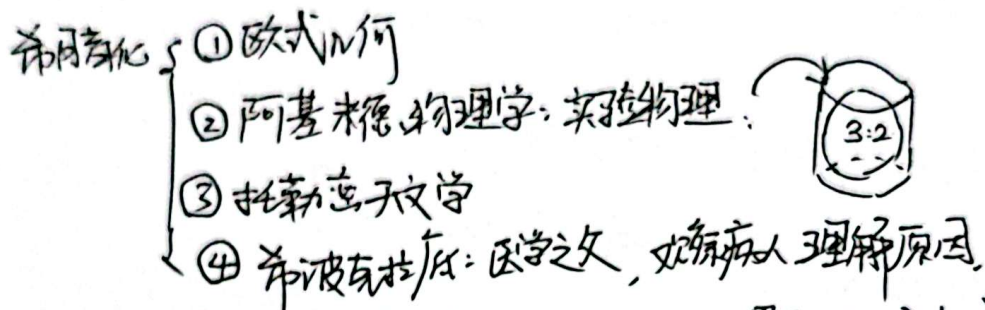 希腊化 ① 欧式几何
② 阿基米德物理学：实验物理． 3:2
③ 托勒密天文学
④ 希波克拉底：医学之父，观察病人理解原因．